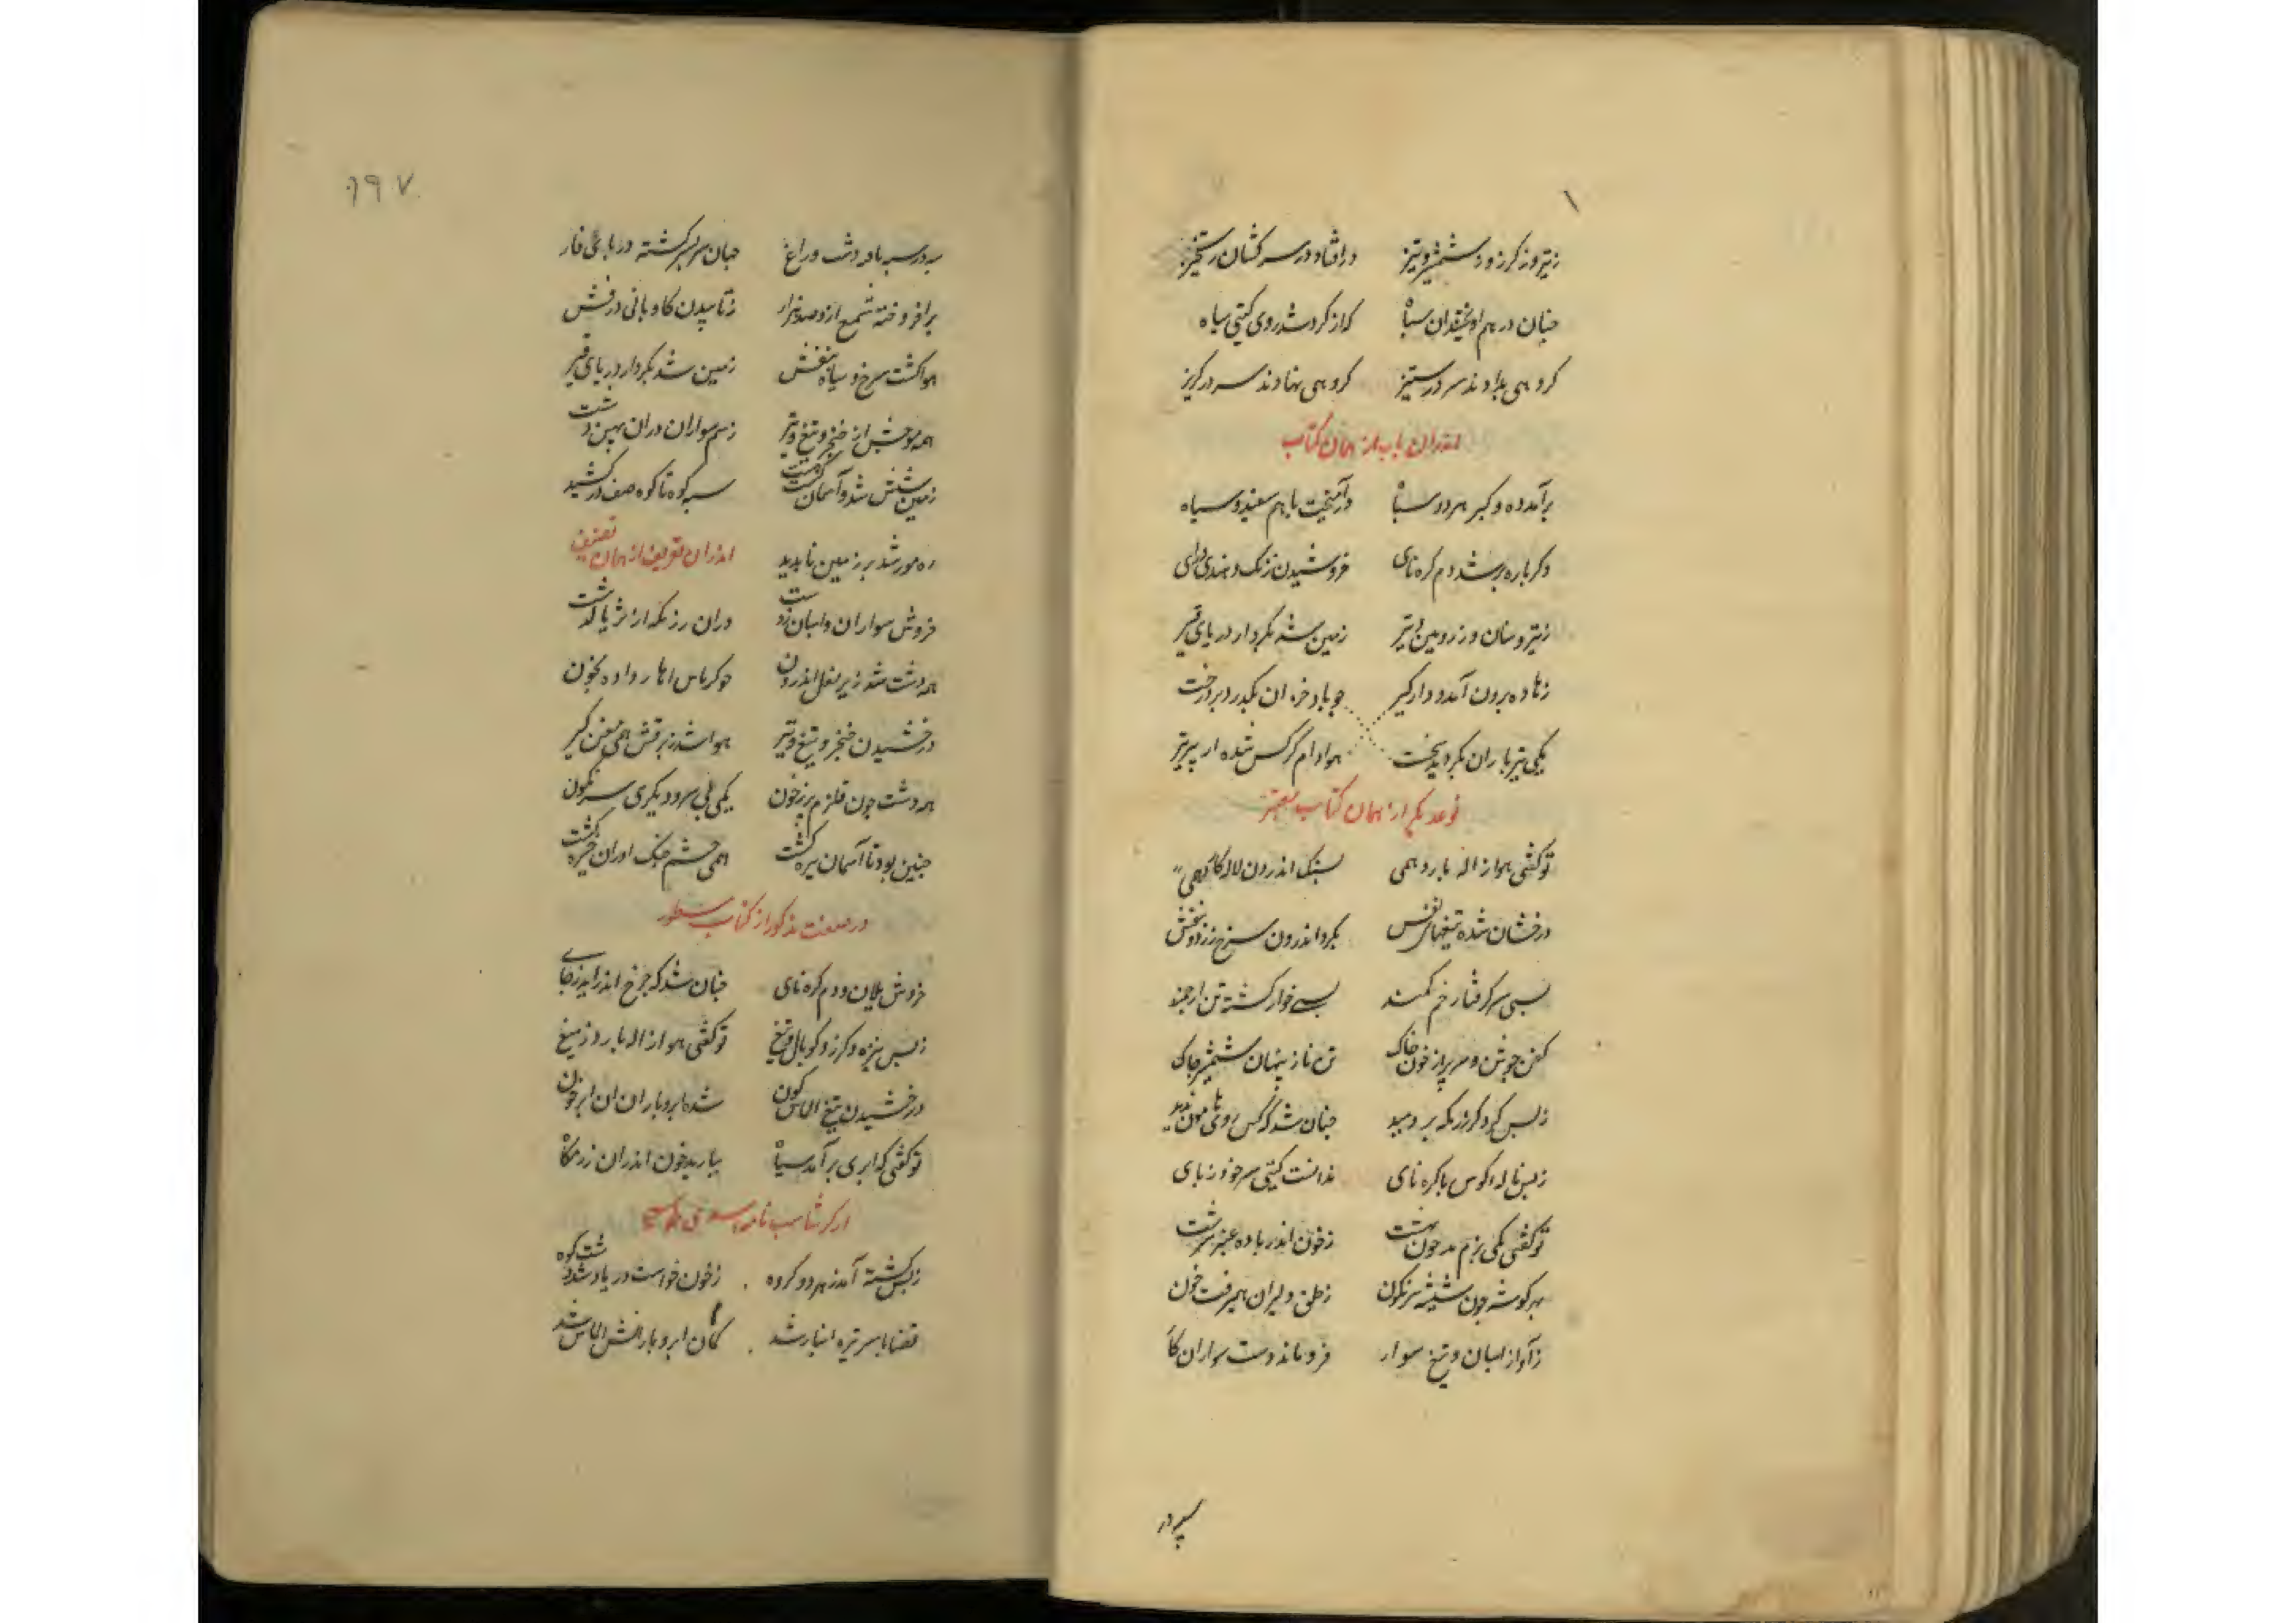 ز تیر و ز گرز و ز شمشیر و تیز در افتاد در سرکشان رستخیز
چنان در هم آویختند آن سپاه که از گرد شد روی گیتی سیاه
گروهی بدادند سر در ستیز گروهی نهادند سر در گریز
اندران باب از همان کتاب
برآمد ده و گیر هر دو سپاه درآمیخت با هم سفید و سیاه
دگرباره برشد دم کره نای خروشیدن زنگ و هندی درای
ز تیر و سنان و ز زوبین و تیر زمین شد بکردار دریای قیر
برون آمد و دار و گیر چو باد خزان بگذرد بر درخت
یکی تیرباران بکردند سخت هوا دام کرکس شده از پر تیر
نوعدیگر از همان کتاب معتبر
تو گفتی هوا ژاله بارد همی بسنگ اندرون لاله کارد همی
درخشان شده تیغهای بنفش بگرد اندرون سرخ و زرد و بنفش
بسی سر گرفتار خم کمند بسی خوار گشته تن ارجمند
کفن جوشن و سر پر از خون و خاک تن نازنینان بشمشیر چاک
ز بس گرد کز رزمگه بر دمید چنان شد که کس روی هامون ندید
ز بس ناله کوس با کره نای ندانست گیتی سر خود ز پای
تو گفتی یکی بزم بد چون بهشت ز خون اندر باده عنبر سرشت
بهر گوشه چون شیشه سرنگون ز حلق دلیران همیرفت خون
ز آواز اسبان و تیغ سوار فرو ماند دست سواران ز کار
سپر در
۱۹۷
سپر در سپر بافته دشت و راغ جهان سر بسر گشته دریای قار
برافروخته شمع ازو صد هزار ز تابیدن کاویانی درفش
هوا گشت سرخ و سیاه و بنفش زمین شد بکردار دریای قیر
همه موجش از خنجر و تیغ و تیر ز سم سواران دران پهن دشت
زمین شش شد و آسمان گشت هشت سپه کوه تا کوه صف در کشید
ره مور شد بر زمین ناپدید اندران تعریف از همان تصنیف
خروش سواران و اسبان ز دشت دران رزمگه از ثریا گذشت
همه دشت شد زیر نعل اندرون چو کرباس آهار داده بخون
درخشیدن خنجر و تیغ و تیر هوا شد ز برقش همی مغز گیر
همه دشت چون قلزم پر ز خون یکی بی سر و دیگری سرنگون
چنین بود تا آسمان تیره گشت همی چشم جنگ آوران خیره گشت
در صفت مذکور از کتاب مسطور
خروش یلان و دم کره نای چنان شد که چرخ اندر آید ز جای
ز بس نیزه و گرز و کوپال و تیغ تو گفتی هوا ژاله بارد ز میغ
درخشیدن تیغ الماس گون شده ابر و باران آن ابر خون
تو گفتی که ابری برآمد سیاه ببارید خون اندران رزمگاه
از کرشاسب نامه اسدی طوسی
ز بس کشته آمد ز هر دو گروه ز خون خواست دریا و شد کوه
قضا با سر تیره انباز شد کمان ابر و بارانش الماس شد